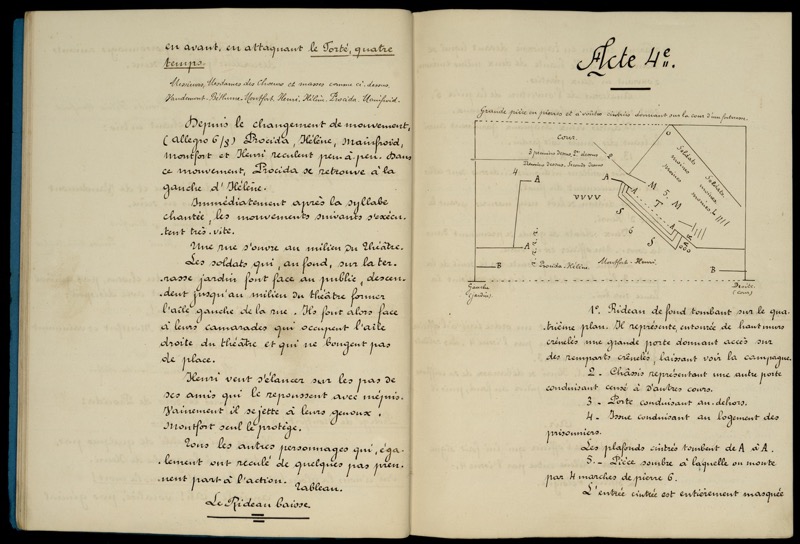 en avant, en attaquant le Forté, quatre
temps.
Messieurs, Mesdames des Chœurs et masses comme ci-dessus,
Vaudemont. Béthune. Montfort. Henri. Hélène. Procida. Mainfroid.
Depuis le changement de mouvement,
(allegro 6/8) Procida, Hélène, Mainfroid,
Montfort et Henri reculent peu à peu. Dans
ce mouvement, Procida se retrouve à la
gauche d'Hélène.
Immédiatement après la syllabe
chantée, les mouvements suivants s'exécu-
-tent très vite.
Une rue s'ouvre au milieu du théâtre.
Les soldats qui, au fond, sur la ter-
-rasse jardin font face au public, descen-
-dent jusqu'au milieu du théâtre former
l'aile gauche de la rue. Ils font alors face
à leurs camarades qui occupent l'aile
droite du théâtre et qui ne bougent pas
de place.
Henri veut s'élancer sur les pas de
ses amis qui le repoussent avec mépris.
Vainement il se jette à leurs genoux.
Montfort seul le protège.
Tous les autres personnages qui, éga-
-lement ont reculé de quelques pas pren-
-nent part à l'action. Tableau.
Le Rideau baisse.
Acte 4e.
Grande pièce en pierres et à voûtes cintrées donnant sur la cour d'une forteresse.
cour.
3 premiers dessus, 2es dessus
Premiers dessus, Seconds dessus
2
4
A
A
A
A
A
vvvv
M. 5. M
T
S
6
S
3
Soldats
moines
Soldats
moines
L
B
B
Procida. Hélène.
Montfort. Henri.
Gauche
(jardin)
Droite.
(cour)
1o. Rideau de fond tombant sur le qua-
-trième plan. Il représente, entourée de hauts murs
crénelés une grande porte donnant accès sur
des remparts crénelés, laissant voir la campagne.
2 - Châssis représentant une autre porte
conduisant censé à d'autres cours.
3 - Porte conduisant au-dehors.
4 - Issue conduisant au logement des
prisonniers.
Les plafonds cintrés tombent de A à A.
5 - Pièce sombre à laquelle on monte
par 4 marches de pierre 6.
L'entrée cintrée est entièrement masquée